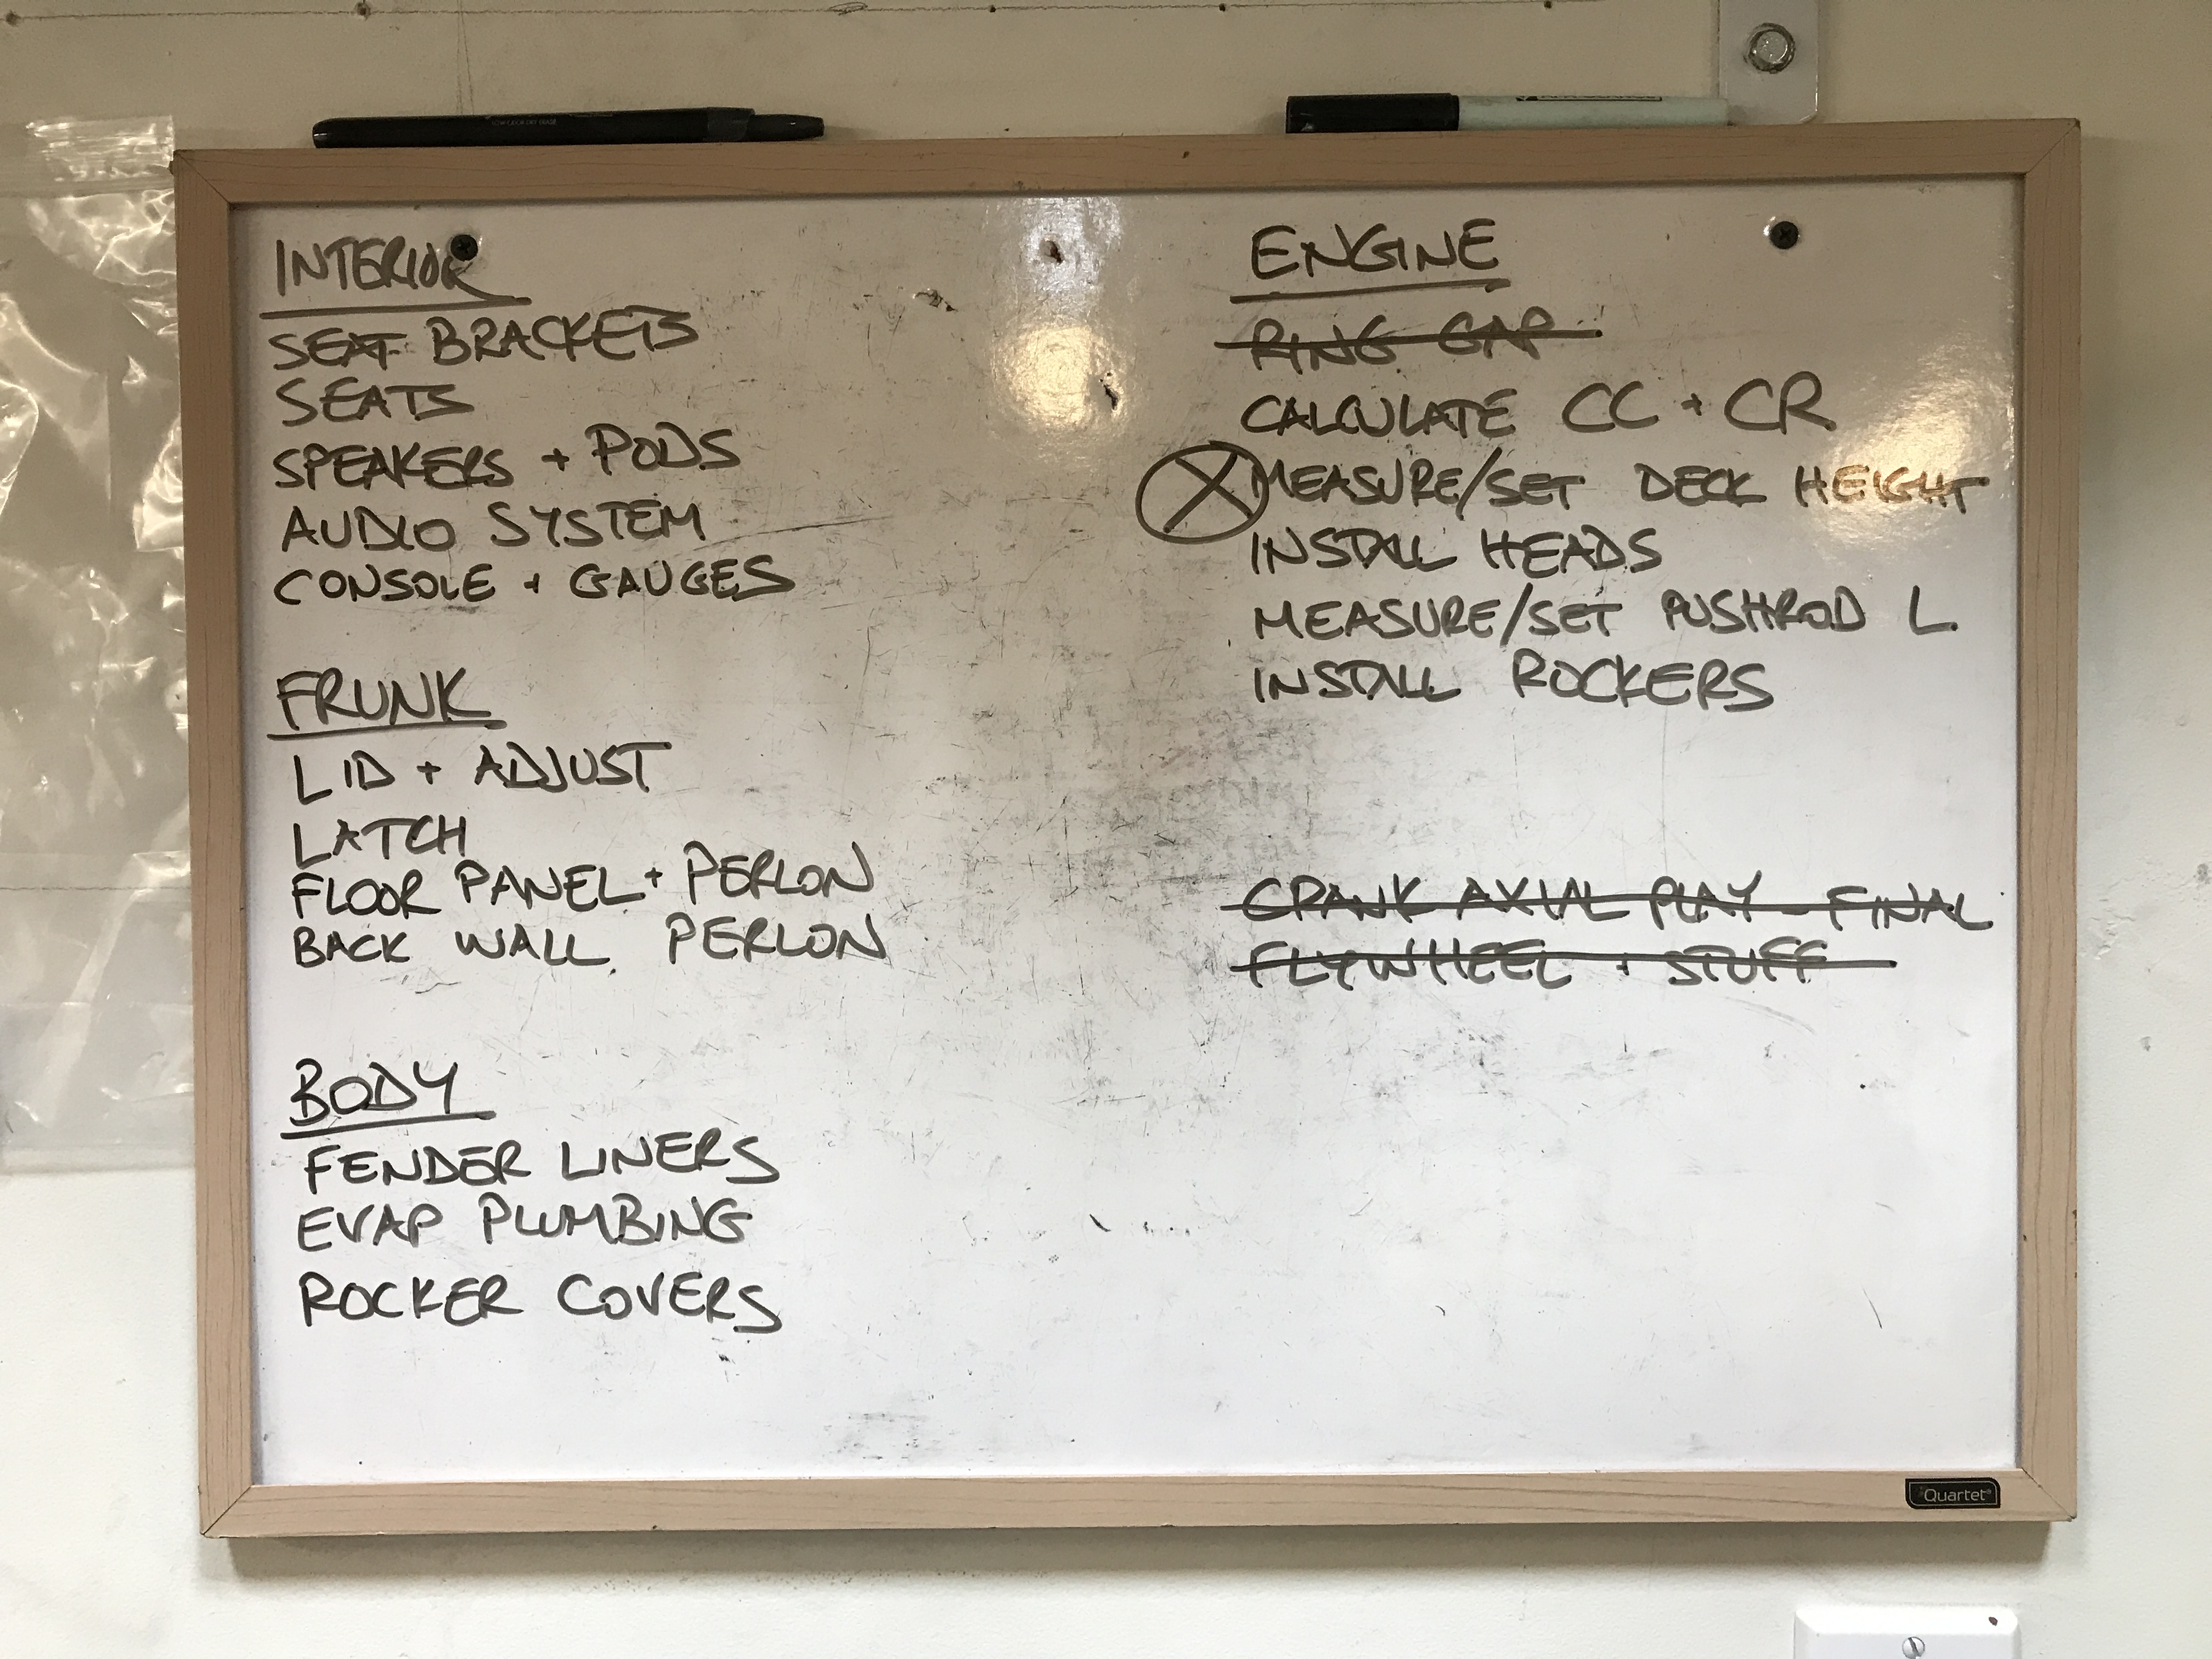 INTERIOR
SEAT BRACKETS
SEATS
SPEAKERS + PODS
AUDIO SYSTEM
CONSOLE + GAUGES
FRUNK
LID + ADJUST
LATCH
FLOOR PANEL + PERLON
BACK WALL PERLON
BODY
FENDER LINERS
EVAP PLUMBING
ROCKER COVERS
ENGINE
RING GAP
CALCULATE CC + CR
MEASURE/SET DECK HEIGHT
INSTALL HEADS
MEASURE/SET PUSHROD L.
INSTALL ROCKERS
CRANK AXIAL PLAY - FINAL
FLYWHEEL + STUFF
Quartet